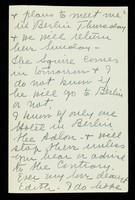 & plans to meet me
in Berlin Thursday
& we will return
here Sunday -
The Squire comes
in tomorrow & I
do not know if
he will go to Berlin
or not.
I know of only one
Hotel in Berlin
the Adlon - & will
stop there unless
you hear or advise
to the contrary
Ever my dear
Edith. I do hope